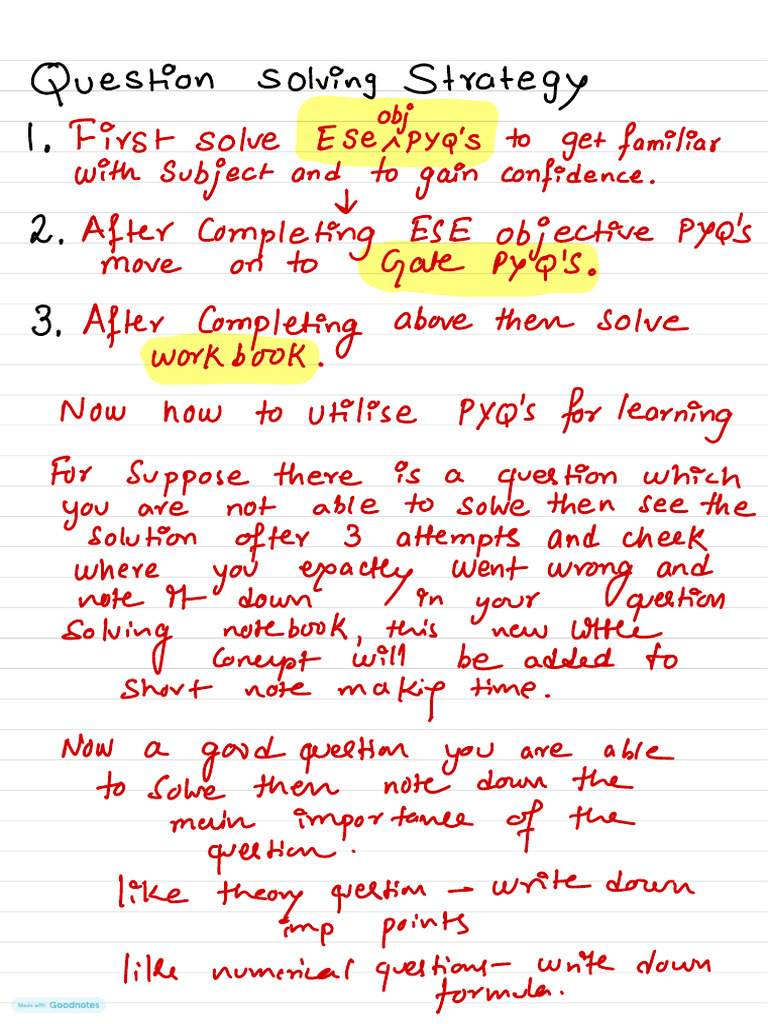 Question solving Strategy
1. First solve ESE ^obj PYQ's to get familiar
with subject and to gain confidence.
↓
2. After Completing ESE objective PYQ's
move on to Gate PYQ'S.
3. After Completing above then solve
work book.
Now how to utilise PYQ's for learning
For Suppose there is a question which
you are not able to solve then see the
solution after 3 attempts and check
where you exactly went wrong and
note it down in your question
Solving notebook, this new little
concept will be added to
short note making time.
Now a good question you are able
to solve then note down the
main importance of the
question.
like theory question - write down
imp points
like numerical questions - write down
formula.
Made with Goodnotes